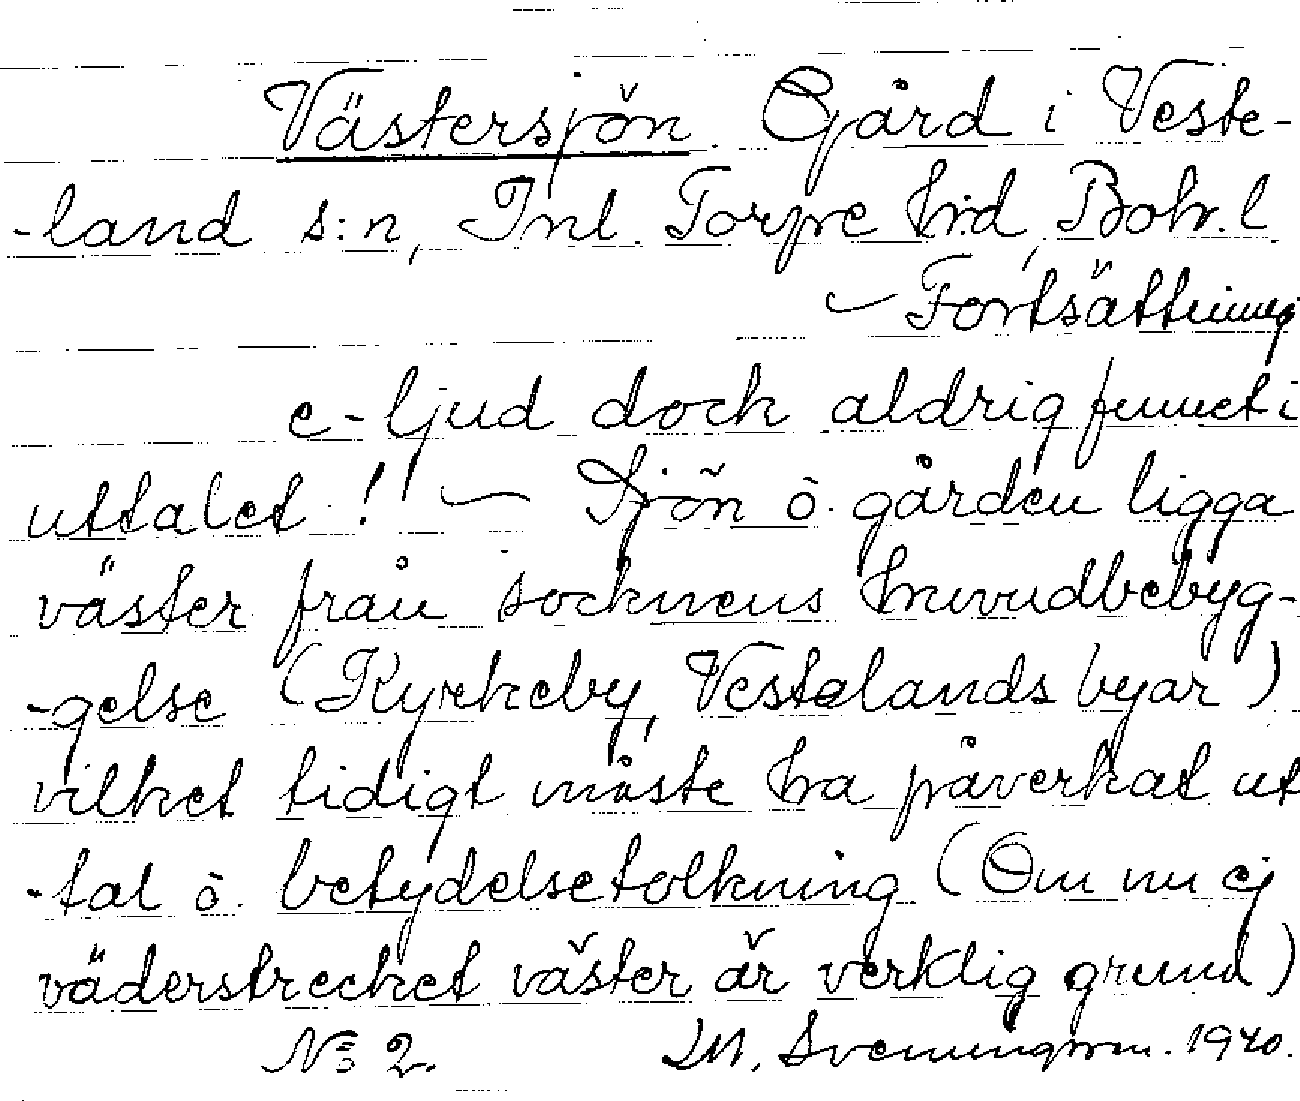 Västersjön. Gård i Veste-
-land s:n, Inl. Torpe hrd, Boh. l.
— Fortsättning
e-ljud doch aldrig funnet i
uttalet! — Sjön o. gården ligga
väster från socknens huvudbebyg-
-gelse (Kyrkeby, Vestelands byar)
vilket tidigt måste ha påverkat ut
-tal o. betydelsetolkning (Om nu ej
väderstrecket väster är verklig grund)
No 2. M. Svenningson. 1940.